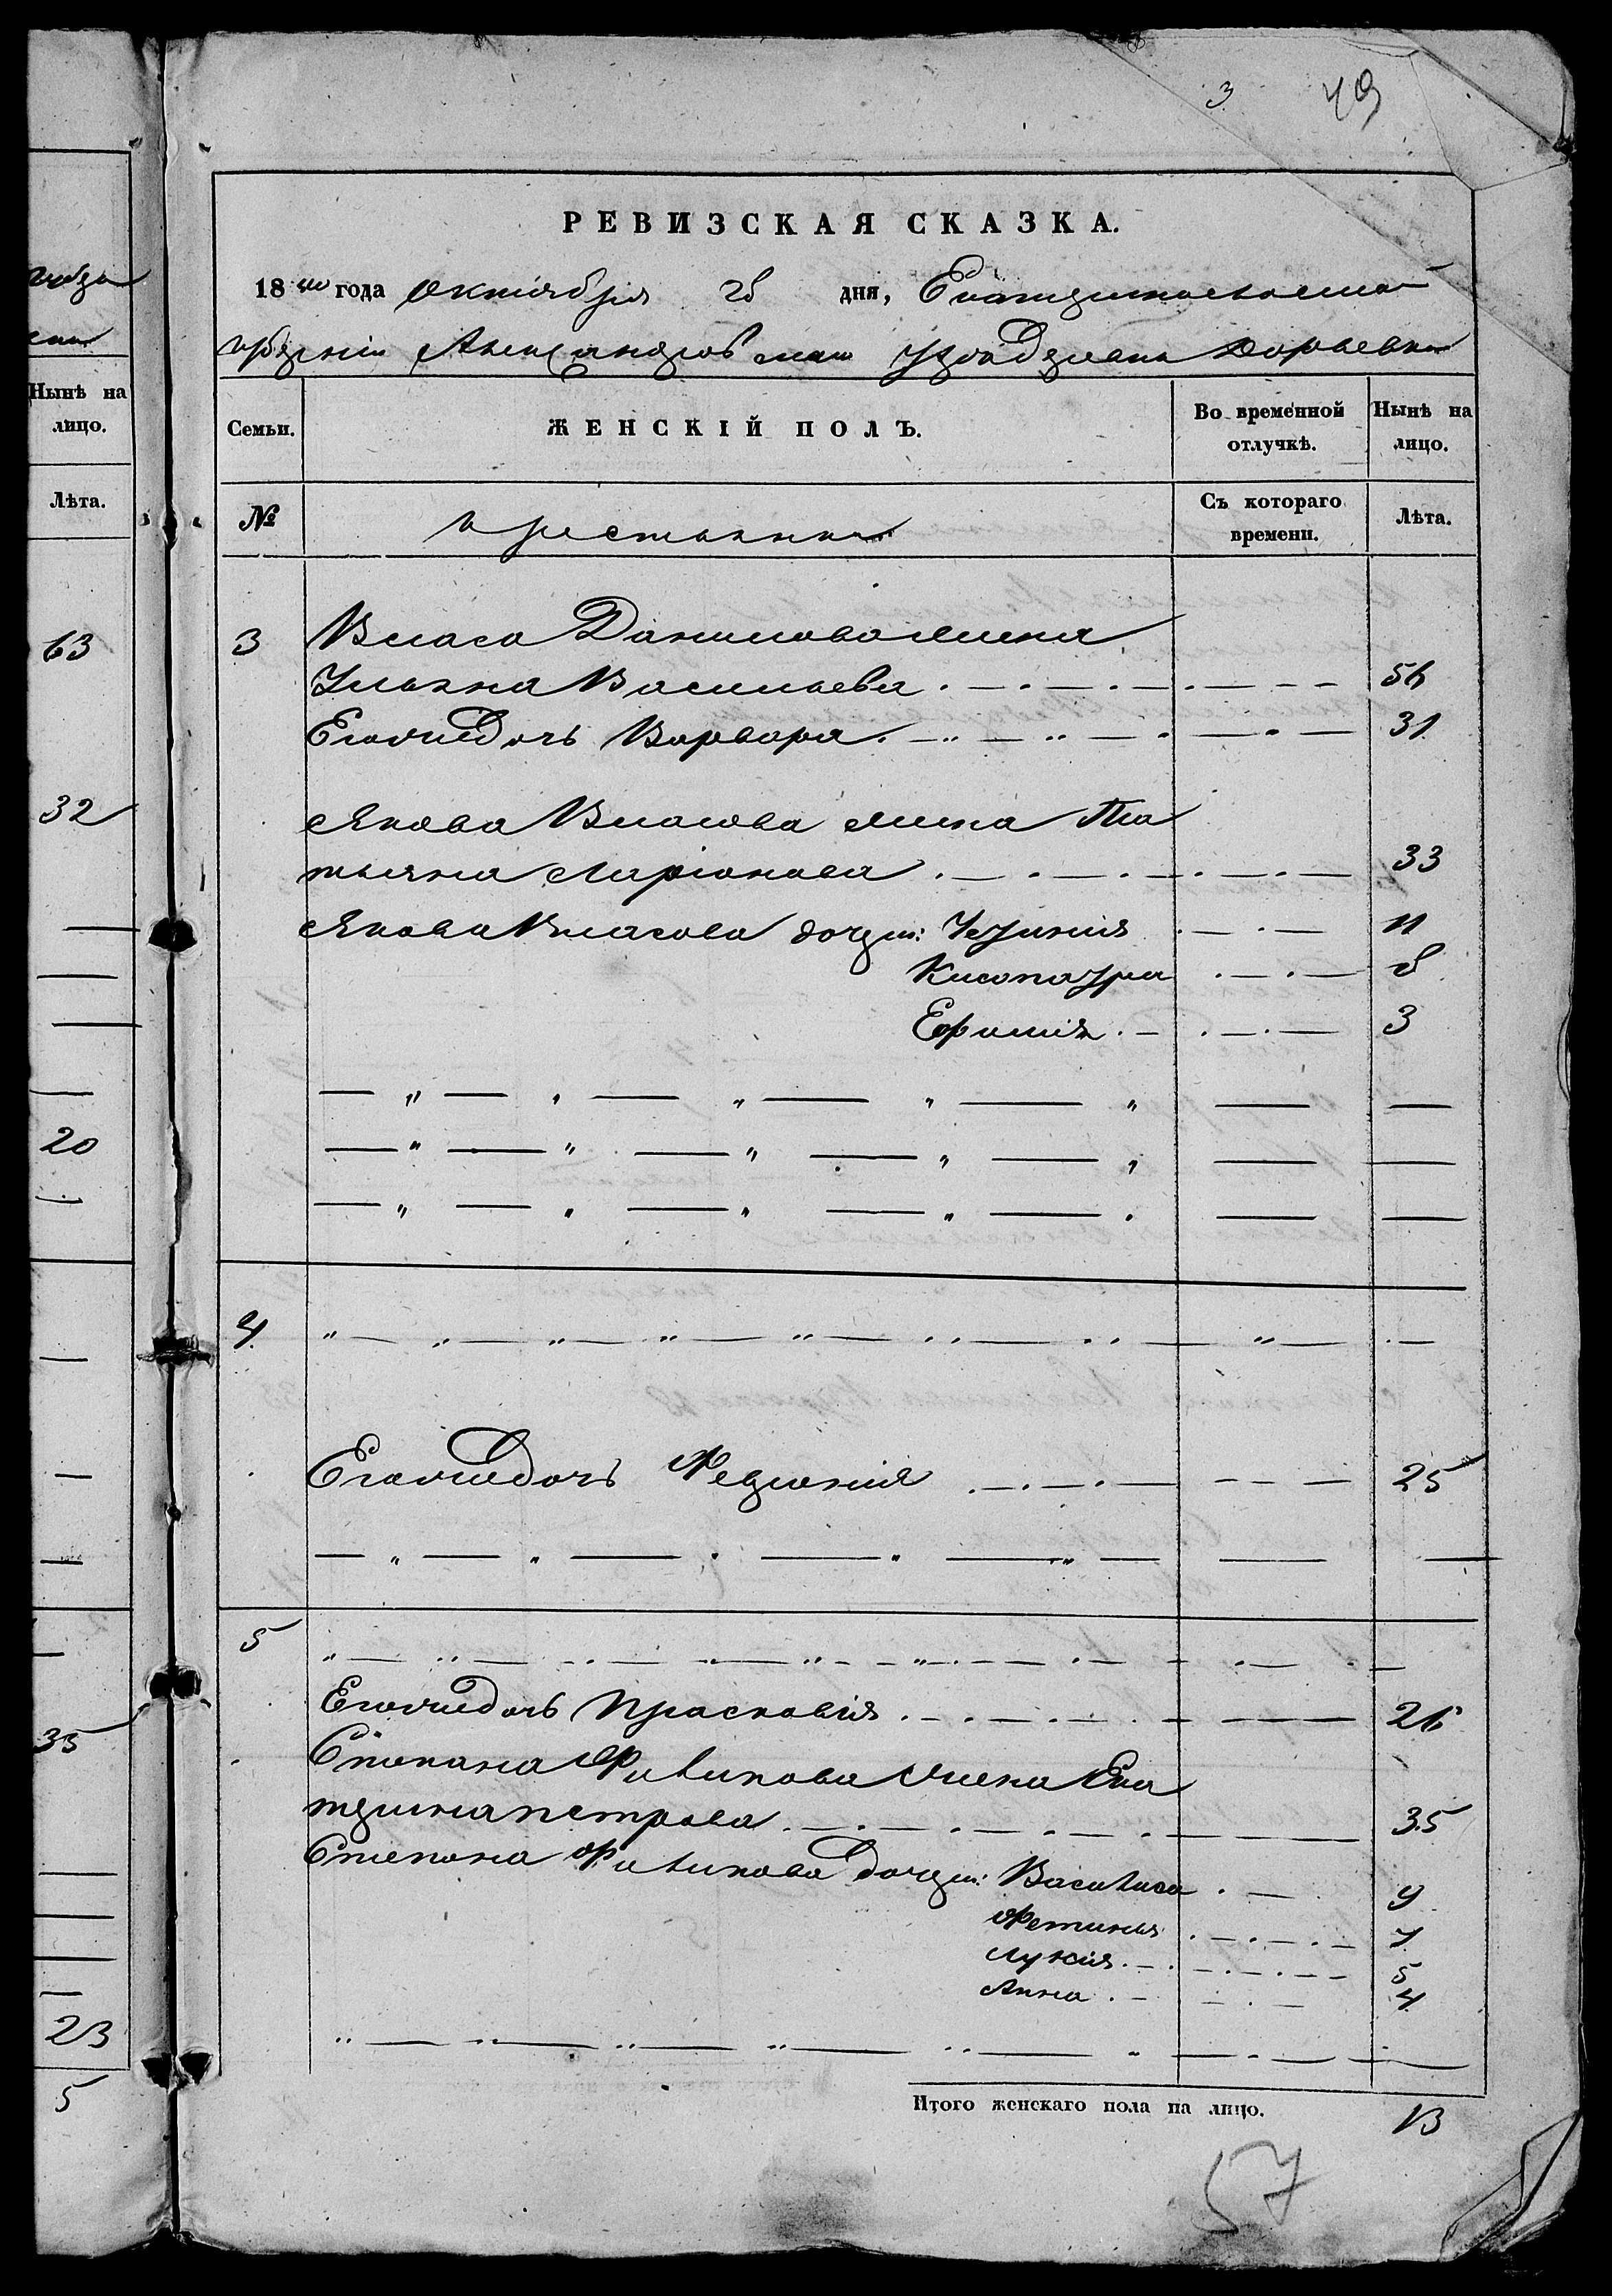 3 49
РЕВИЗСКАЯ СКАЗКА.
18 года Октября 28 дня, Екатеринославской
губерніи Александровскаго Уезда деревни Юрьевки
Нынѣ на лицо.
Семьи. ЖЕНСКІЙ ПОЛЪ. Во временной отлучкѣ. Нынѣ на лицо.
Лѣта.
№ крестьянки Съ котораго времени. Лѣта.
63
3 Власа Данилова жена
Ульяна Васильева 56
Еговидочь Варвара 31
32
Якова Власова жена Та
тьяна Ларіонова 33
Якова Власова дочери: 11
Клеопатра 8
Ефимія 3
20
4
Еговидочь Февронія 25
5
Еговидочь Прасковія 26
35
Степана Филипова жена Ека
терина петрова 35
Степана Филипова дочери: Василиса 9
Фетинья 7
Лукія 5
Анна 4
23
5
Итого женскаго пола на лицо. 13
57